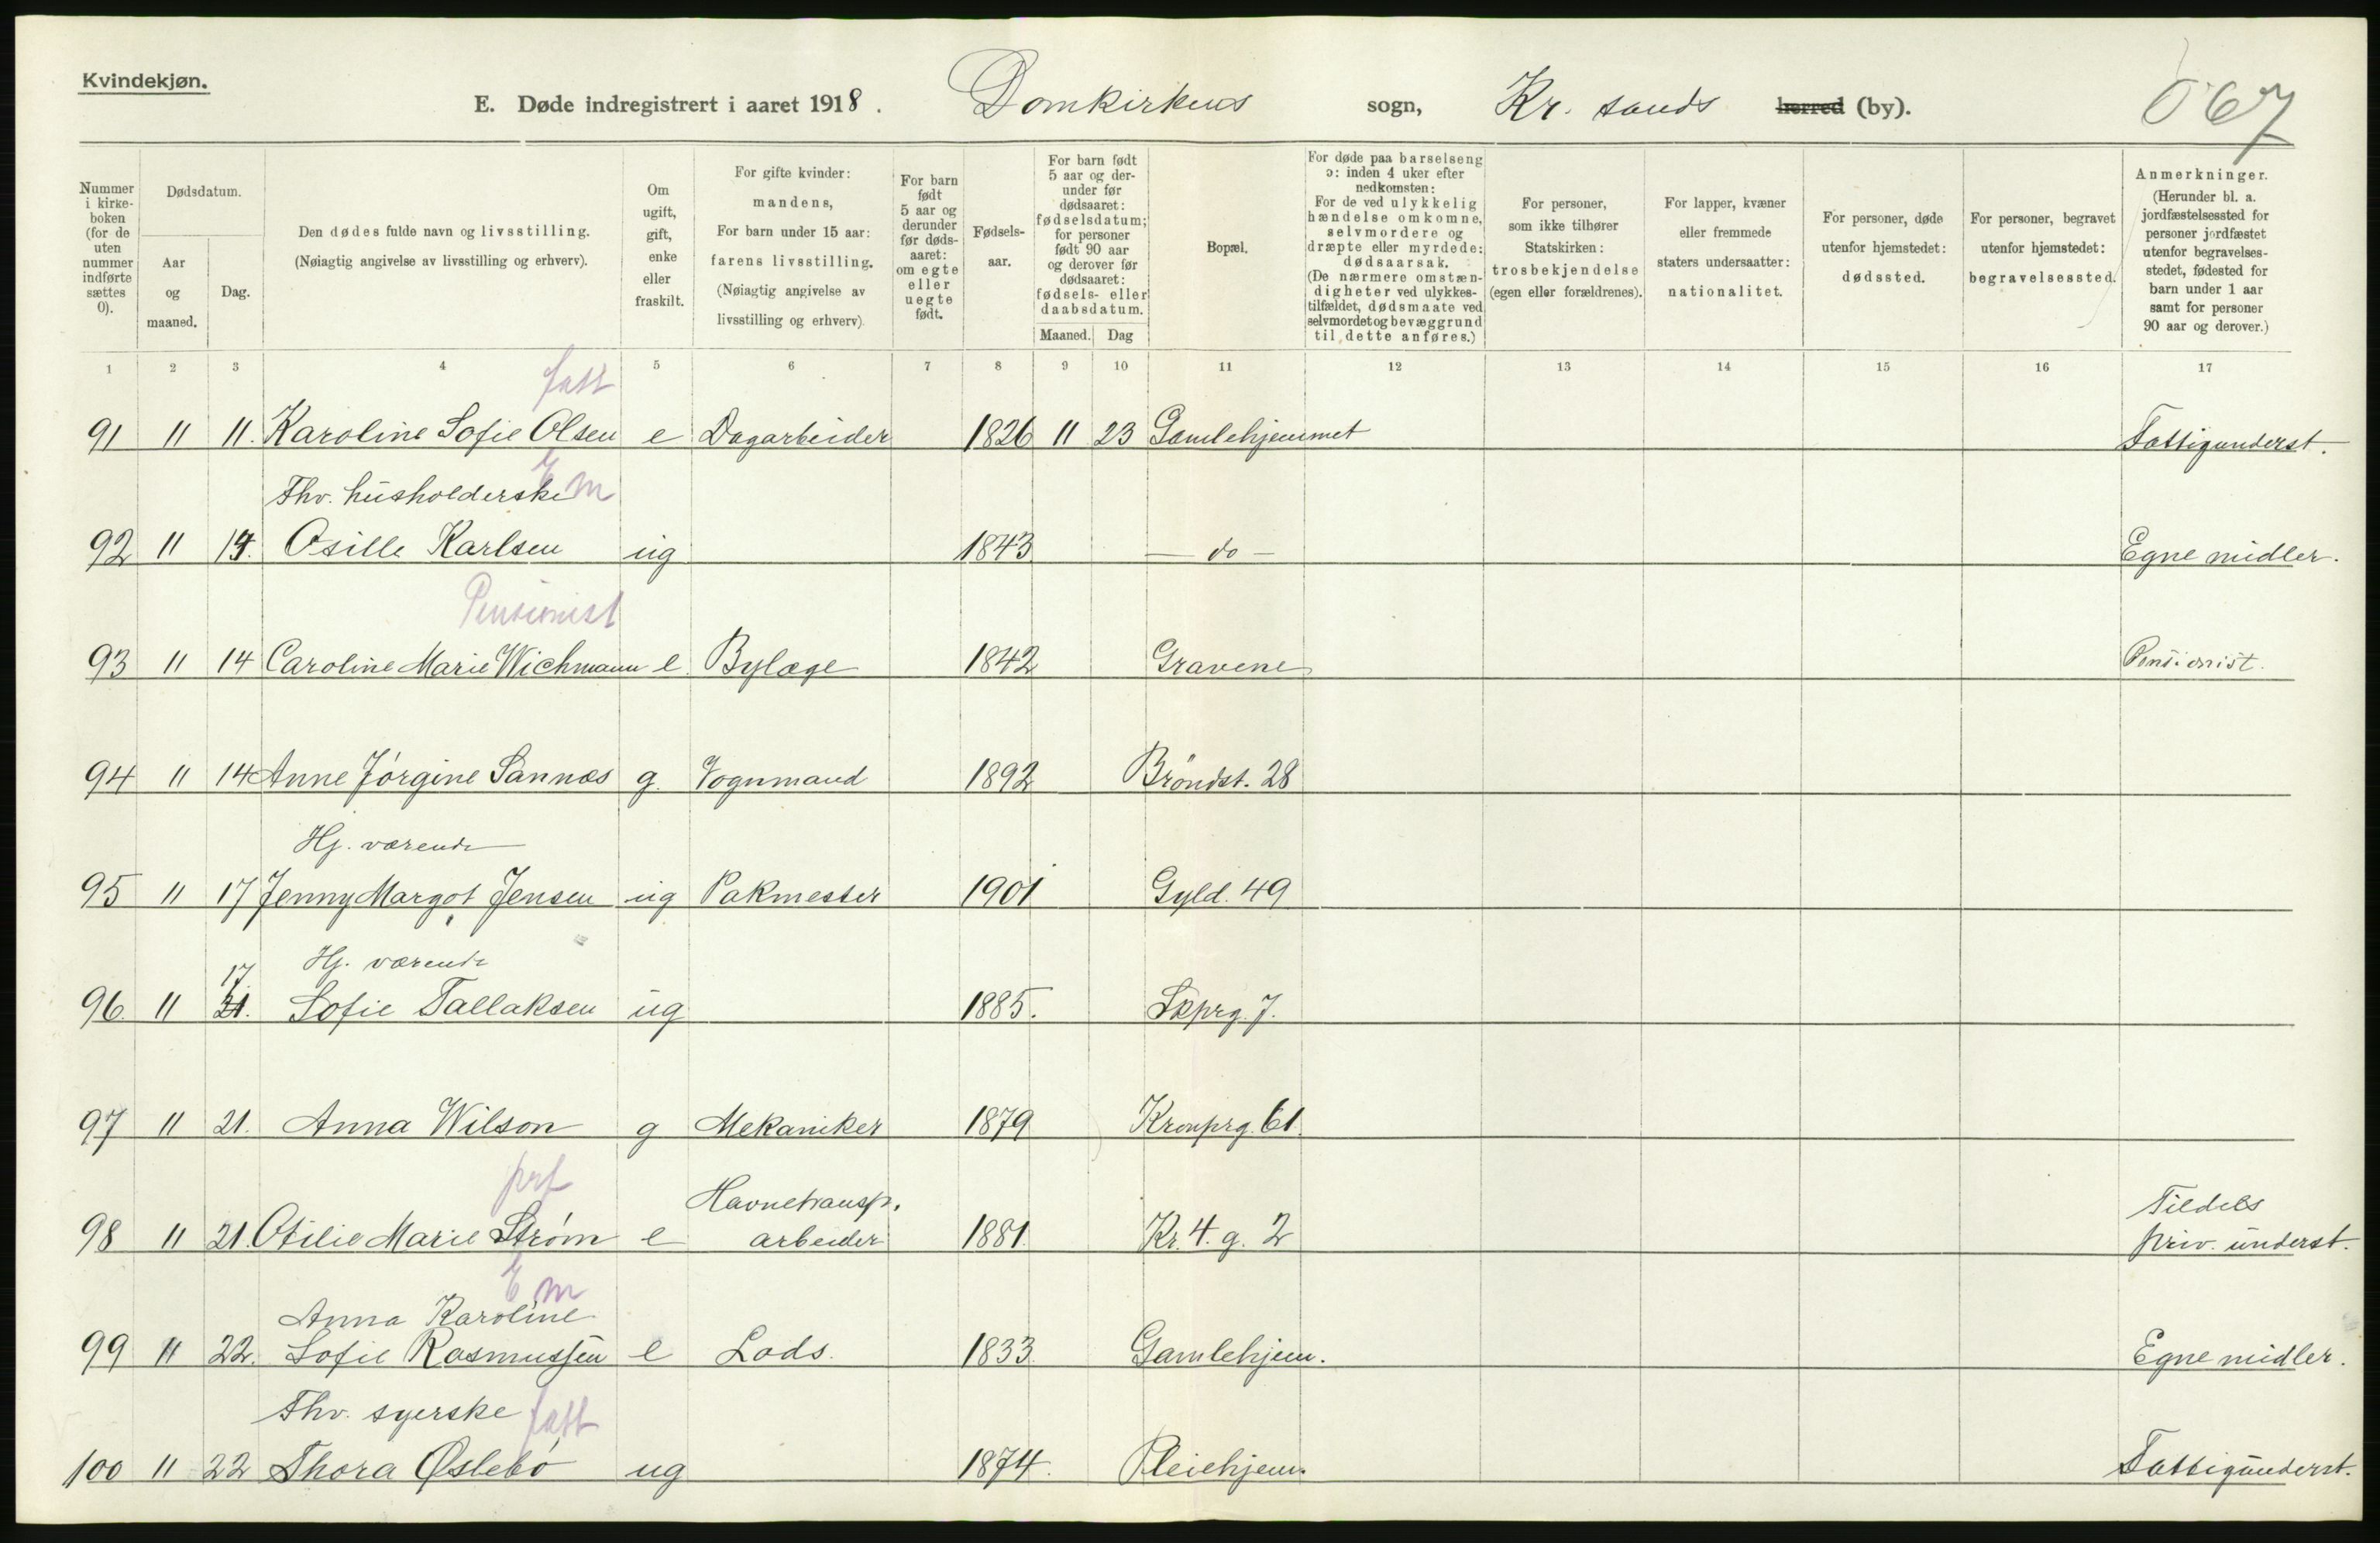 Kvindekjøn.
E. Døde indregistrert i aaret 1918. Domkirkens sogn, Kr. sands herred (by).
067
Nummer i kirkeboken (for de uten nummer indførte sættes 0).
Dødsdatum.
Aar og maaned.
Dag.
Den dødes fulde navn og livsstilling.
(Nøiagtig angivelse av livsstilling og erhverv).
Om ugift, gift, enke eller fraskilt.
For gifte kvinder: mandens,
For barn under 15 aar: farens livsstilling.
(Nøiagtig angivelse av livsstilling og erhverv).
For barn født 5 aar og derunder før dødsaaret: om egte eller uegte født.
Fødselsaar.
For barn født 5 aar og derunder før dødsaaret: fødselsdatum; for personer født 90 aar og derover før dødsaaret: fødsels- eller daabsdatum.
Maaned. Dag
Bopæl.
For døde paa barselseng ɔ: inden 4 uker efter nedkomsten: For de ved ulykkelig hændelse omkomne, selvmordere og dræpte eller myrdede: dødsaarsak.
(De nærmere omstændigheter ved ulykkestilfældet, dødsmaate ved selvmordet og bevæggrund til dette anføres.)
For personer, som ikke tilhører Statskirken: trosbekjendelse (egen eller forældrenes).
For lapper, kvæner eller fremmede staters undersaatter: nationalitet.
For personer, døde utenfor hjemstedet: dødssted.
For personer, begravet utenfor hjemstedet: begravelsessted.
Anmerkninger.
(Herunder bl. a. jordfæstelsessted for personer jordfæstet utenfor begravelsesstedet, fødested for barn under 1 aar samt for personer 90 aar og derover.)
1 2 3 4 5 6 7 8 9 10 11 12 13 14 15 16 17
fatt
91 11 11. Karoline Sofie Olsen e Dagarbeider 1826 11 23 Gamlehjemmet Fattigunderst.
Fhv. husholderske E m
92 11 14. Osille Karlsen ug 1843 — do — Egne midler.
Pensionist
93 11 14 Caroline Marie Wichmann e Bylæge 1842 Gravene Pensionist.
94 11 14 Anne Jörgine Sannæs g. Vognmand 1892 Bröndst. 28
Hj. værende
95 11 17 Jenny Margot Jensen ug Pakmester 1901 Gyld. 49
17 Hj. værende
96. 11 21. Sofie Tallaksen ug 1885. Skprg. 7.
97 11 21. Anna Wilson g Mekaniker 1879 Kronprg. 61.
prf Havnetransp. Tildels
98 11 21. Otilie Marie Strøm e arbeider 1881. Kr. 4. g. 2 priv. underst.
E m
Anna Karoline
99 11 22. Sofie Rasmussen e Lods. 1833. Gamlehjem. Egne midler.
Fhv. syerske fatt
100 11 22 Thora Øslebö ug 1874. Pleiehjem. Fattigunderst.